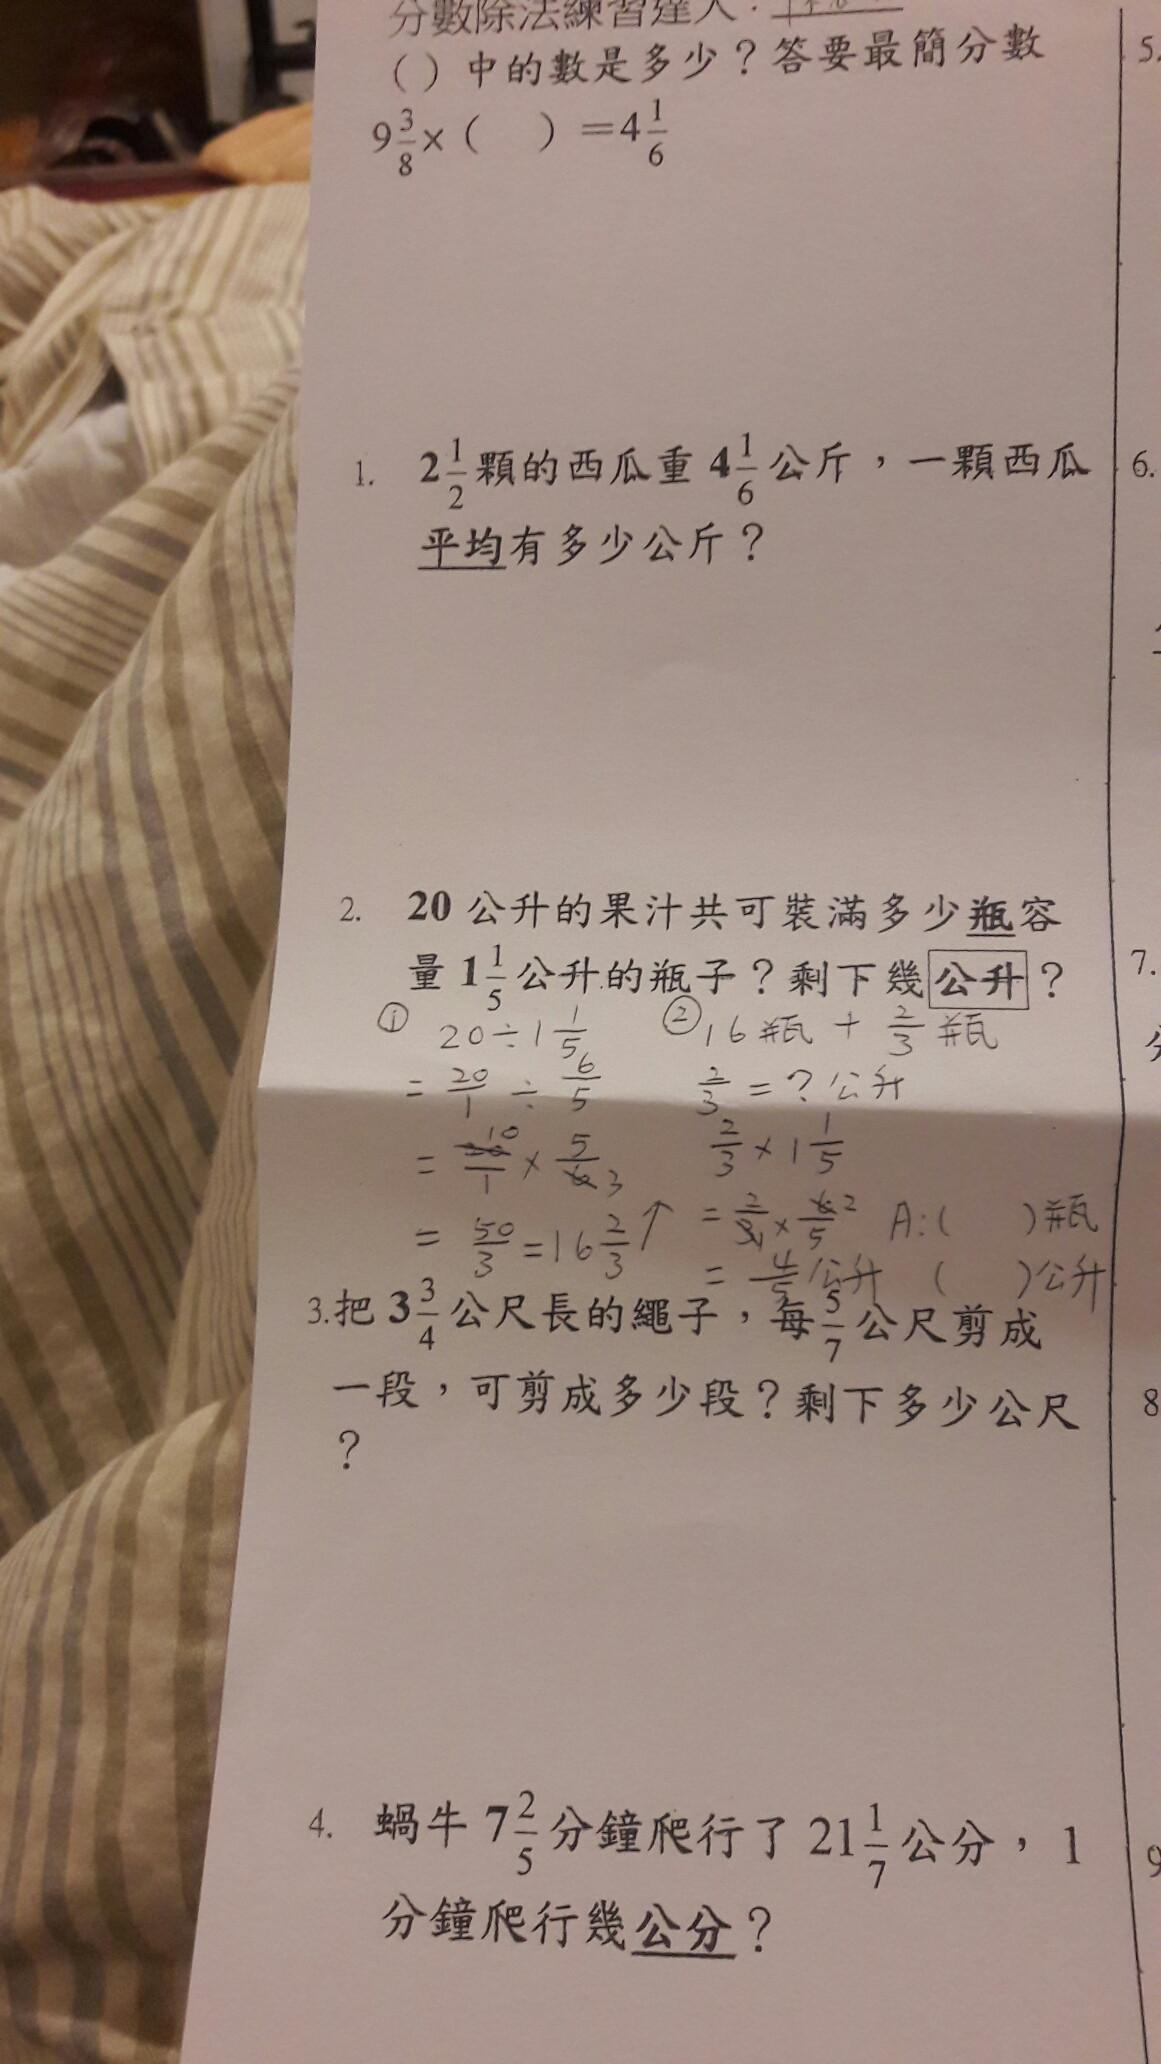 分數除法練習達人：
（）中的數是多少？答要最簡分數
9 3/8 ×（　）＝4 1/6
1. 2 1/2 顆的西瓜重 4 1/6 公斤，一顆西瓜
平均有多少公斤？
2. 20 公升的果汁共可裝滿多少瓶容
量 1 1/5 公升的瓶子？剩下幾公升？
① 20÷1 1/5
= 20/1 ÷ 6/5
= 20/1 10 × 5/6 3
= 50/3 = 16 2/3 ↑
② 16瓶 + 2/3 瓶
2/3 = ? 公升
2/3 × 1 1/5
= 2/3 1 × 6/5 2
= 4/5 公升
A:(　)瓶
(　)公升
3.把 3 3/4 公尺長的繩子，每 5/7 公尺剪成
一段，可剪成多少段？剩下多少公尺
？
4. 蝸牛 7 2/5 分鐘爬行了 21 1/7 公分，1
分鐘爬行幾公分？
5.
6.
7.
8
9